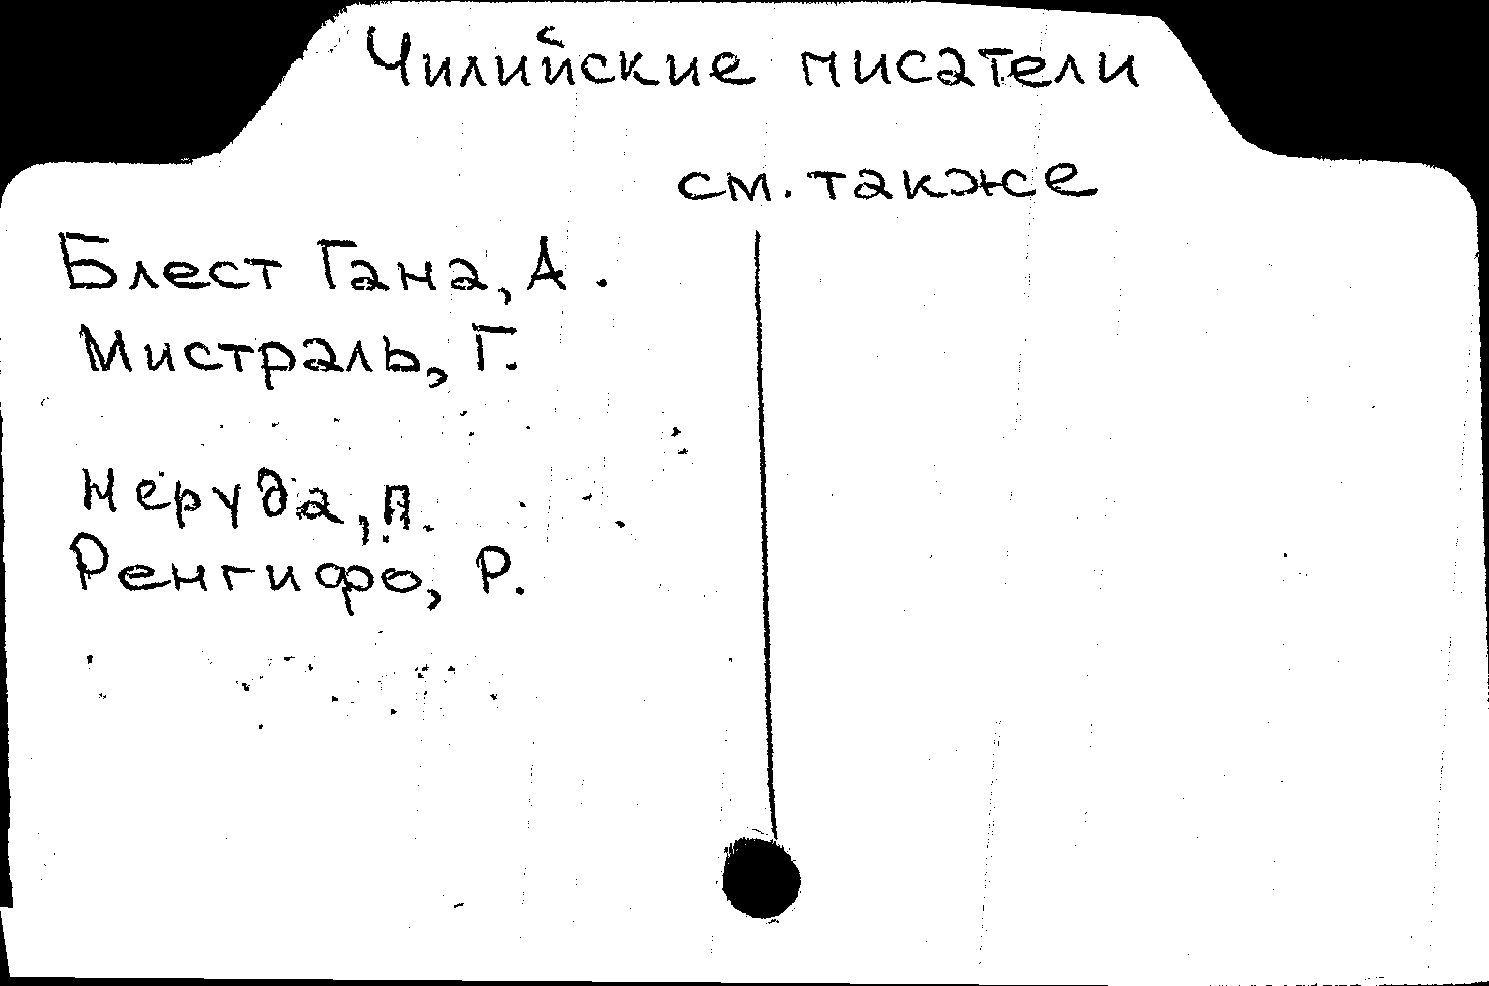 Чилийские писатели
см. также
Блест Гана, А.
Мистраль, Г.
Неруда, П.
Ренгифо, Р.